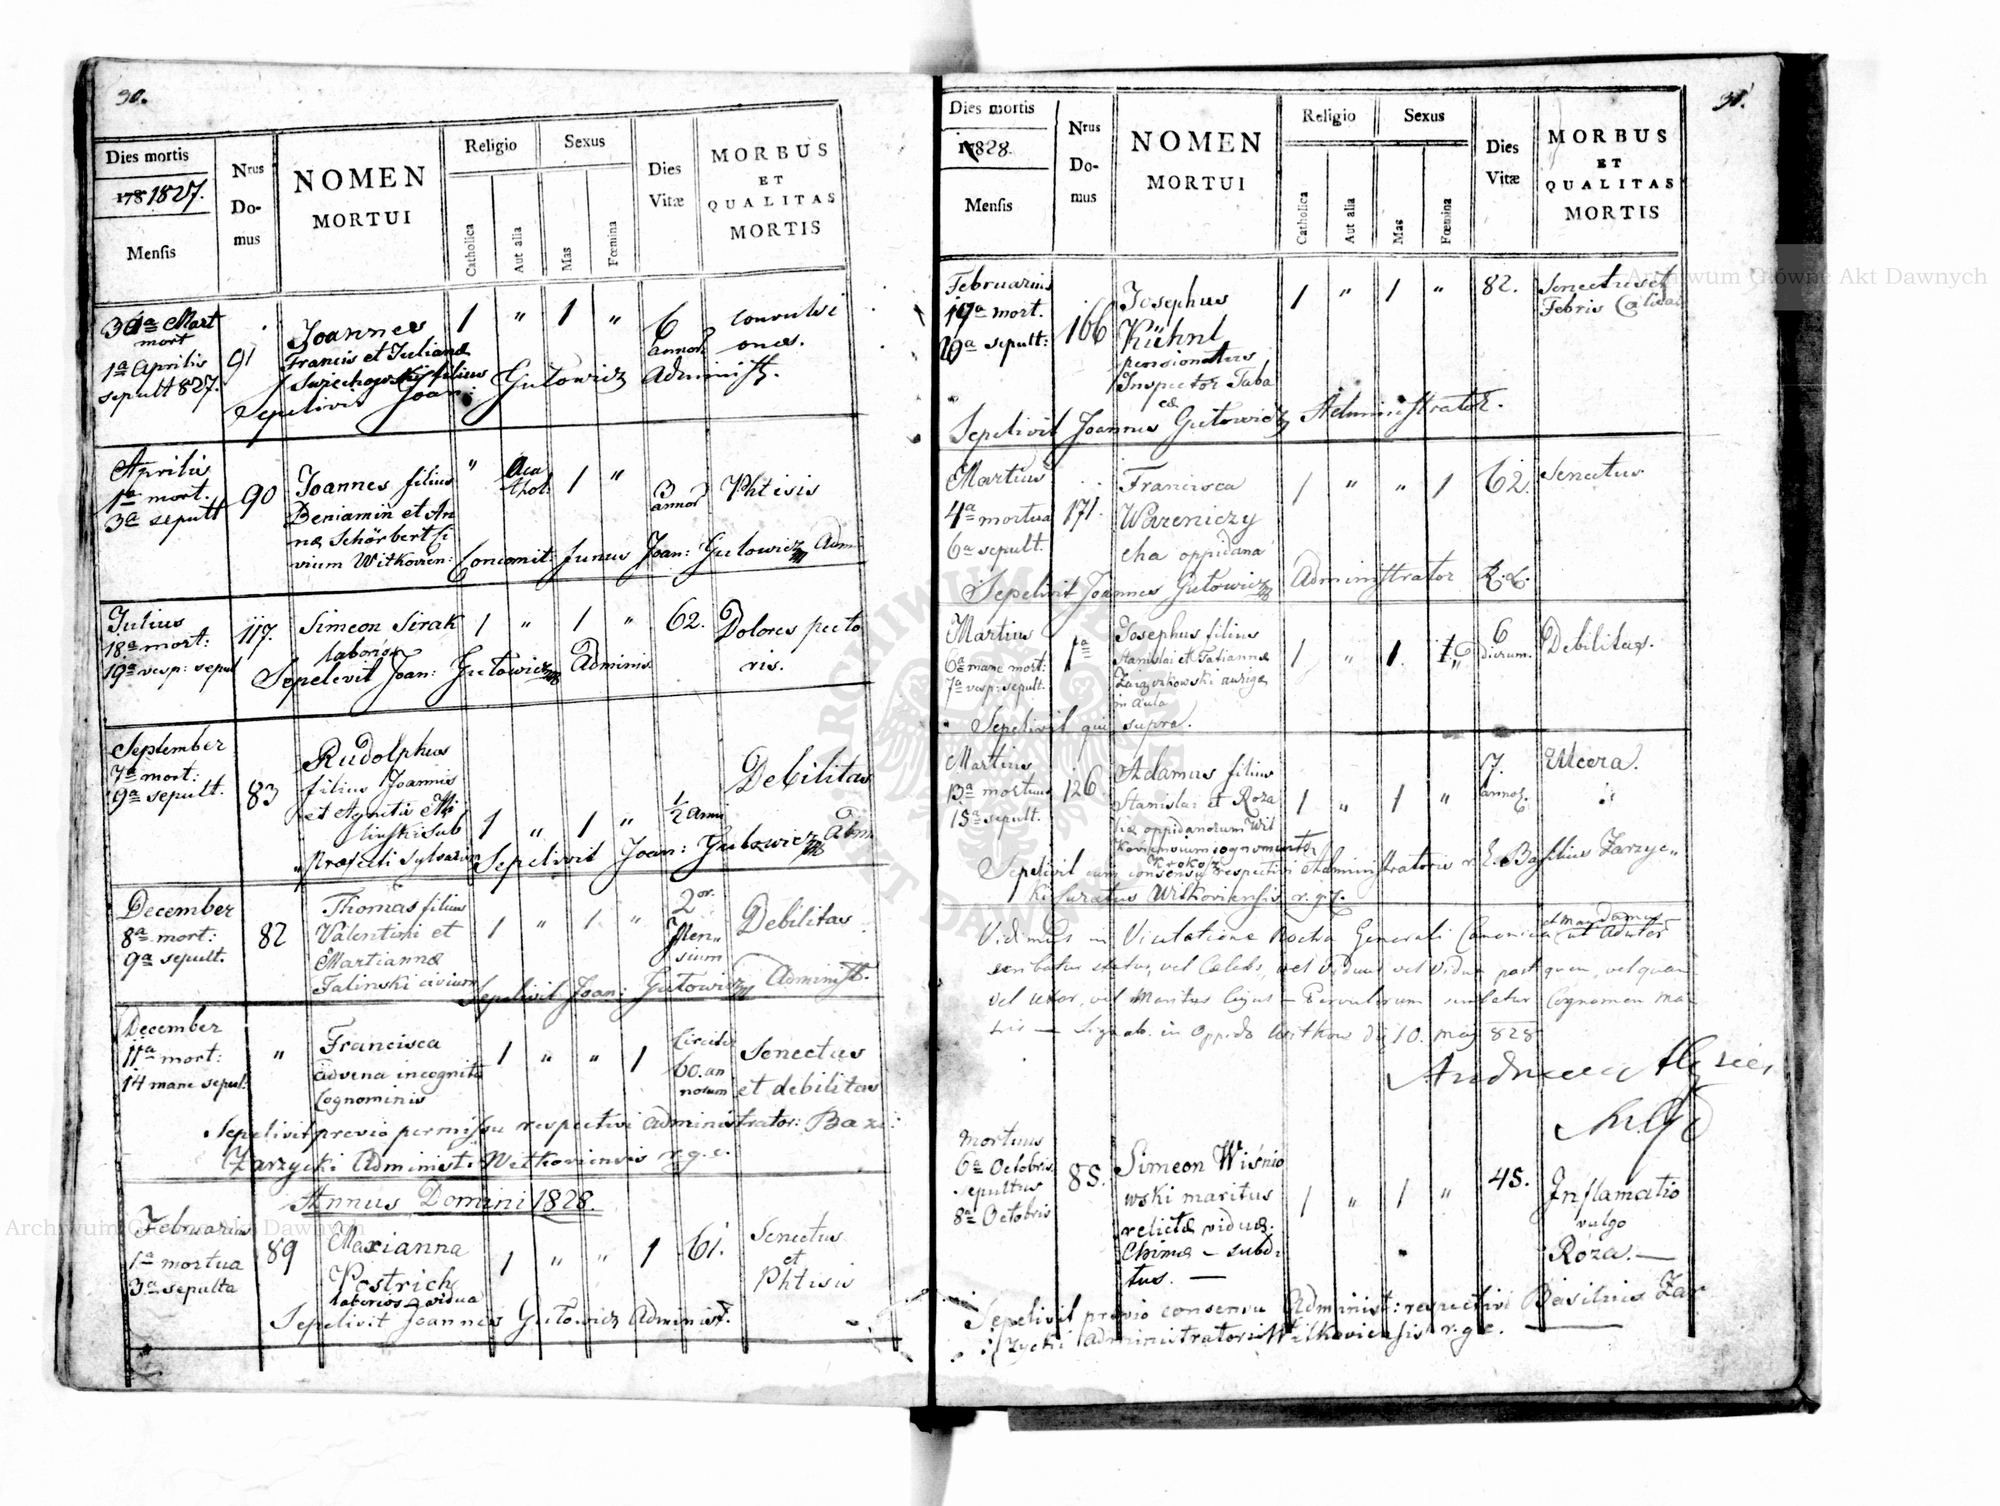 30.
Dies mortis
1781827.
Mensis
Nrus
Do-
mus
NOMEN
MORTUI
Religio
Catholica
Aut alia
Sexus
Mas
Fœmina
Dies
Vitæ
MORBUS
ET
QUALITAS
MORTIS
Mart
mort
1a Aprilis
sepult 827.
91
Joannes
Francis et Julianæ
filius
1 " 1 "
6
annor
convulsi
ones.
Sepelivit Joan: Gutowicz Administr.
Aprilis
1a mort.
3a sepult
90
Joannes filius
Beniamin et An
næ Schörbert Ci
vium Witkovien:
" Aca
thol: 1 "
3
annor
Phtisis
Concomit: funus Joan: Gutowicz Adm
Julius
18a mort:
19a vesp: sepul
117.
Simeon Sirak
laborios
1 " 1 "
62.
Dolores pecto
ris.
Sepelivit Joan: Gutowicz Adminis
September
7a mort:
9a sepult.
83
Rudolphus
filius Joannis
et Agnetis
linski sub
Præfecti Sylvarum
1 " 1 "
1/2 anni
Debilitas
Sepelivit Joan: Gutowicz Adm
December
8a mort:
9a sepult.
82
Thomas filius
Valentini et
Mariannæ
Talinski civium
1 " 1 "
2or.
Men„
sium
Debilitas
Sepelivit Joan: Gutowicz Administr.
December
11a mort:
14 mane sepul:
"
Francisca
advena incogniti
Cognominis
1 " " 1
Circiter
60. an
norum
Senectus
et debilitas
Sepelivit previo permissu respectivi administrator: Bazi:
Zarzycki Administ: Witkoviensis r. g. c.
Annus Domini 1828.
Februarius
1a mortua
3a sepulta
89
Marianna
Postrich
laborios vidua
1 " " 1
61.
Senectus
et
Phtisis
Sepelivit Joannes Gutowicz Administ.
31.
Dies mortis
1828.
Mensis
Nrus
Do-
mus
NOMEN
MORTUI
Religio
Catholica
Aut alia
Sexus
Mas
Fœmina
Dies
Vitæ
MORBUS
ET
QUALITAS
MORTIS
Februarius
mort.
sepult:
166
Josephus
Kühnl
pensionatus
Inspector Taba
cæ
1 " 1 "
82.
Senectus et
Febris
Sepelivit Joannes Gutowicz Administrator.
Martius
4a mortua
6a sepult.
171.
Francisca
Wozeniczy
cha oppidana
1 " " 1
62.
Senectus
Sepelivit Joannes Gutowicz Administrator
Martius
6a mane mort:
7a vesp: sepult.
1a
Josephus filius
Stanislai et Tatiannæ
aurigæ
in Aula
1 " 1.
6
dierum.
Debilitas.
Sepelivit qui supra.
Martius
13a mortuus
15a sepult.
126
Adamus filius
Stanislai et Roza
liæ oppidanorum Wit
koviensium cognominator
Krokosz
1 " 1 "
7.
annor.
Ulcera.
Sepelivit cum consensu respectivi Administratoris r. l. Basilius Zarzyc„
ki Curatus Witkoviensis r. g. c.
Vidimus in Visitatione Generali Canonica et mandamus ut
status, vel Cælebs, vel Viduus vel Vidua post quem, vel quam
vel uxor, vel Maritus Cognomen Ma
tris — in Oppido Witkow 10. 828
mortuus
6a Octobris
sepultus
8a Octobris
85.
Simeon Wiśnio
wski maritus
relictæ viduæ
— subdi
tus. —
1 " 1 "
45.
Inflamatio
vulgo
Róza. —
Sepelivit previo consensu Administ: respectivi Basilius Zar
zycki Administrator: Witkoviensis r. g. c.
Archiwum Główne Akt Dawnych
Archiwum Główne Akt Dawnych
ARCHIWUM GŁÓWNE AKT DAWNYCH